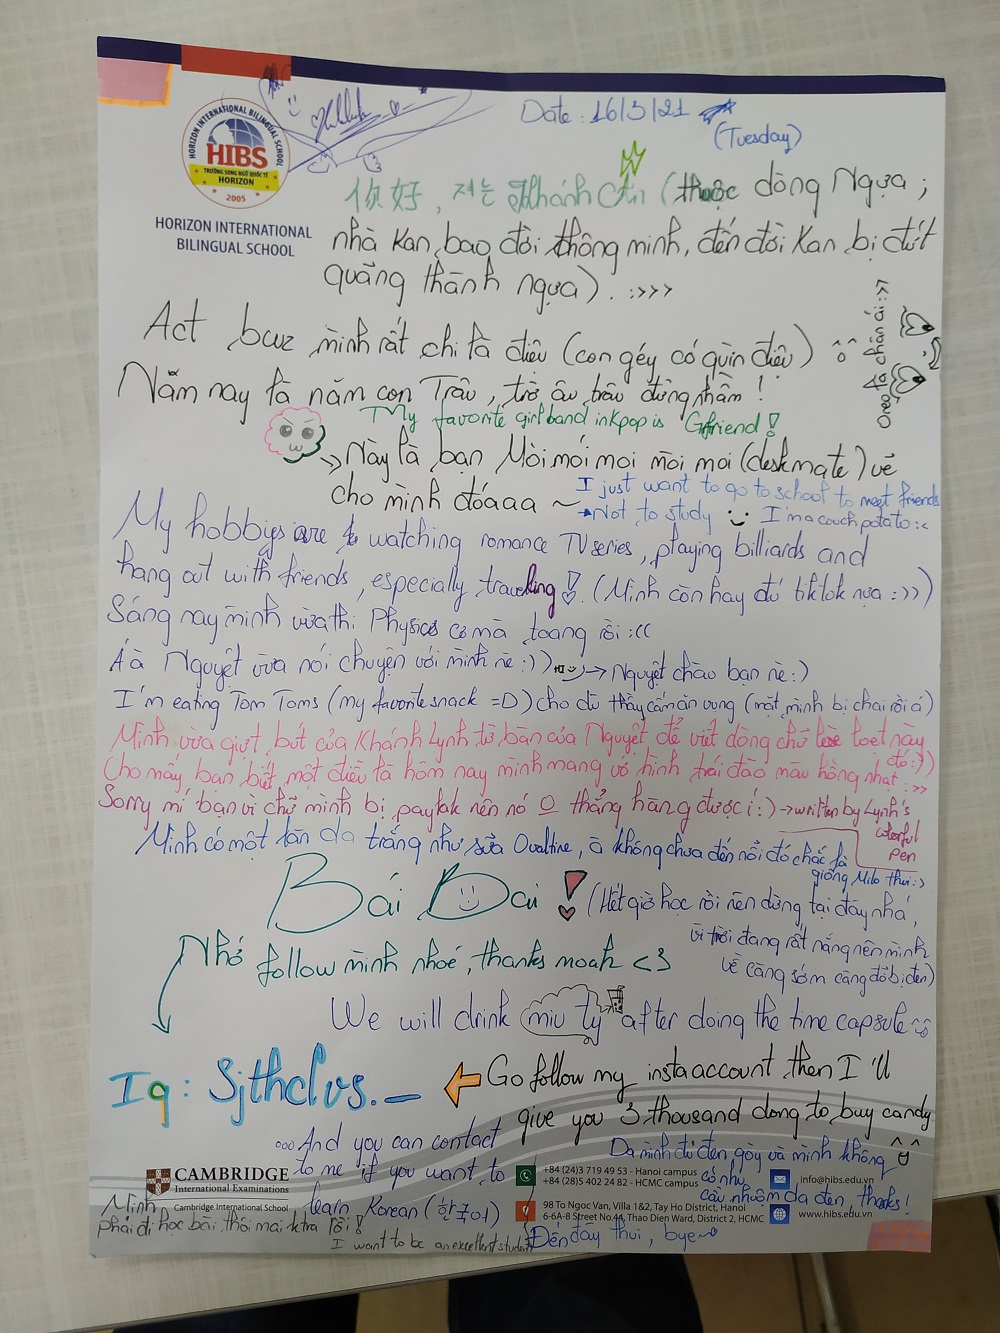 HORIZON INTERNATIONAL BILINGUAL SCHOOL
HIBS
TRƯỜNG SONG NGỮ QUỐC TẾ
HORIZON
2005
HORIZON INTERNATIONAL
BILINGUAL SCHOOL
Date : 16/3/21
(Tuesday)
你好, 저는 Khánh Chi (thuộc dòng Ngựa,
nhà Kan bao đời thông minh, đến đời Kan bị đứt
quãng thành ngựa). :>>>
Act bwz mình rất chi là điêu (con géy có quìn điêu)
Oreo là chân ái :>>
Năm nay là năm con Trâu, trờ âu trâu đừng nhầm !
My favorite girlband inkpop is Gfriend !
Này là bạn Mòi mói mọi mõi moi (deskmate) vẽ
cho mình đóaaa ~
I just want to go to school to meet friends
Not to study I'm a couch potato :<
My hobbys are watching romance TV series, playing billiards and
hang out with friends, especially traveling ! (Mình còn hay đú tiktok nựa :>>)
Sáng nay mình vừa thi Physics cơ mà toang rồi :((
À à Nguyệt vừa nói chuyện với mình nè :)) → Nguyệt chào bạn nè :)
I'm eating Tom Toms (my favorite snack =D) cho dù thầy cấm ăn vụng (mặt mình bị chai rồi á)
Mình vừa giựt bút của Khánh Lynh từ bàn của Nguyệt để viết dòng chữ lòe loẹt này
đó :))
Cho mấy bạn biết một điều là hôm nay mình mang vớ hình trái đào màu hồng nhạt :>>
Sorry mí bạn vì chữ mình bị paylak nên nó 0 thẳng hàng được í :) → written by Lynh's
colorful
pen
Mình có một làn da trắng như sữa Ovaltine, à không chưa đến nỗi đó chắc là
giống Milo thui :>
Bái Bai !
(Hết giờ học rồi nên dừng tại đây nhá,
vì trời đang rất nắng nên mình
về càng sớm càng đỡ bị đen)
Nhớ follow mình nhoé, thanks moah <3
We will drink miu ty after doing the time capsule
Ig : Sjthclvs._
Go follow my insta account then I'll
give you 3 thousand dong to buy candy
And you can contact
to me if you want to
learn Korean (한국어)
Da mình đủ đen gòy và mình không
có nhu
cầu nhuộm da đen, thanks!
CAMBRIDGE
International Examinations
Cambridge International School
+84 (24)3 719 49 53 - Hanoi campus
+84 (28)5 402 24 82 - HCMC campus
info@hibs.edu.vn
98 To Ngoc Van, Villa 1&2, Tay Ho District, Hanoi
6-6A-8 Street No.44, Thao Dien Ward, District 2, HCMC
www.hibs.edu.vn
Mình
phải đi học bài, thôi mai ktra rồi !
I want to be an excellent student
Đến đây thui, bye~